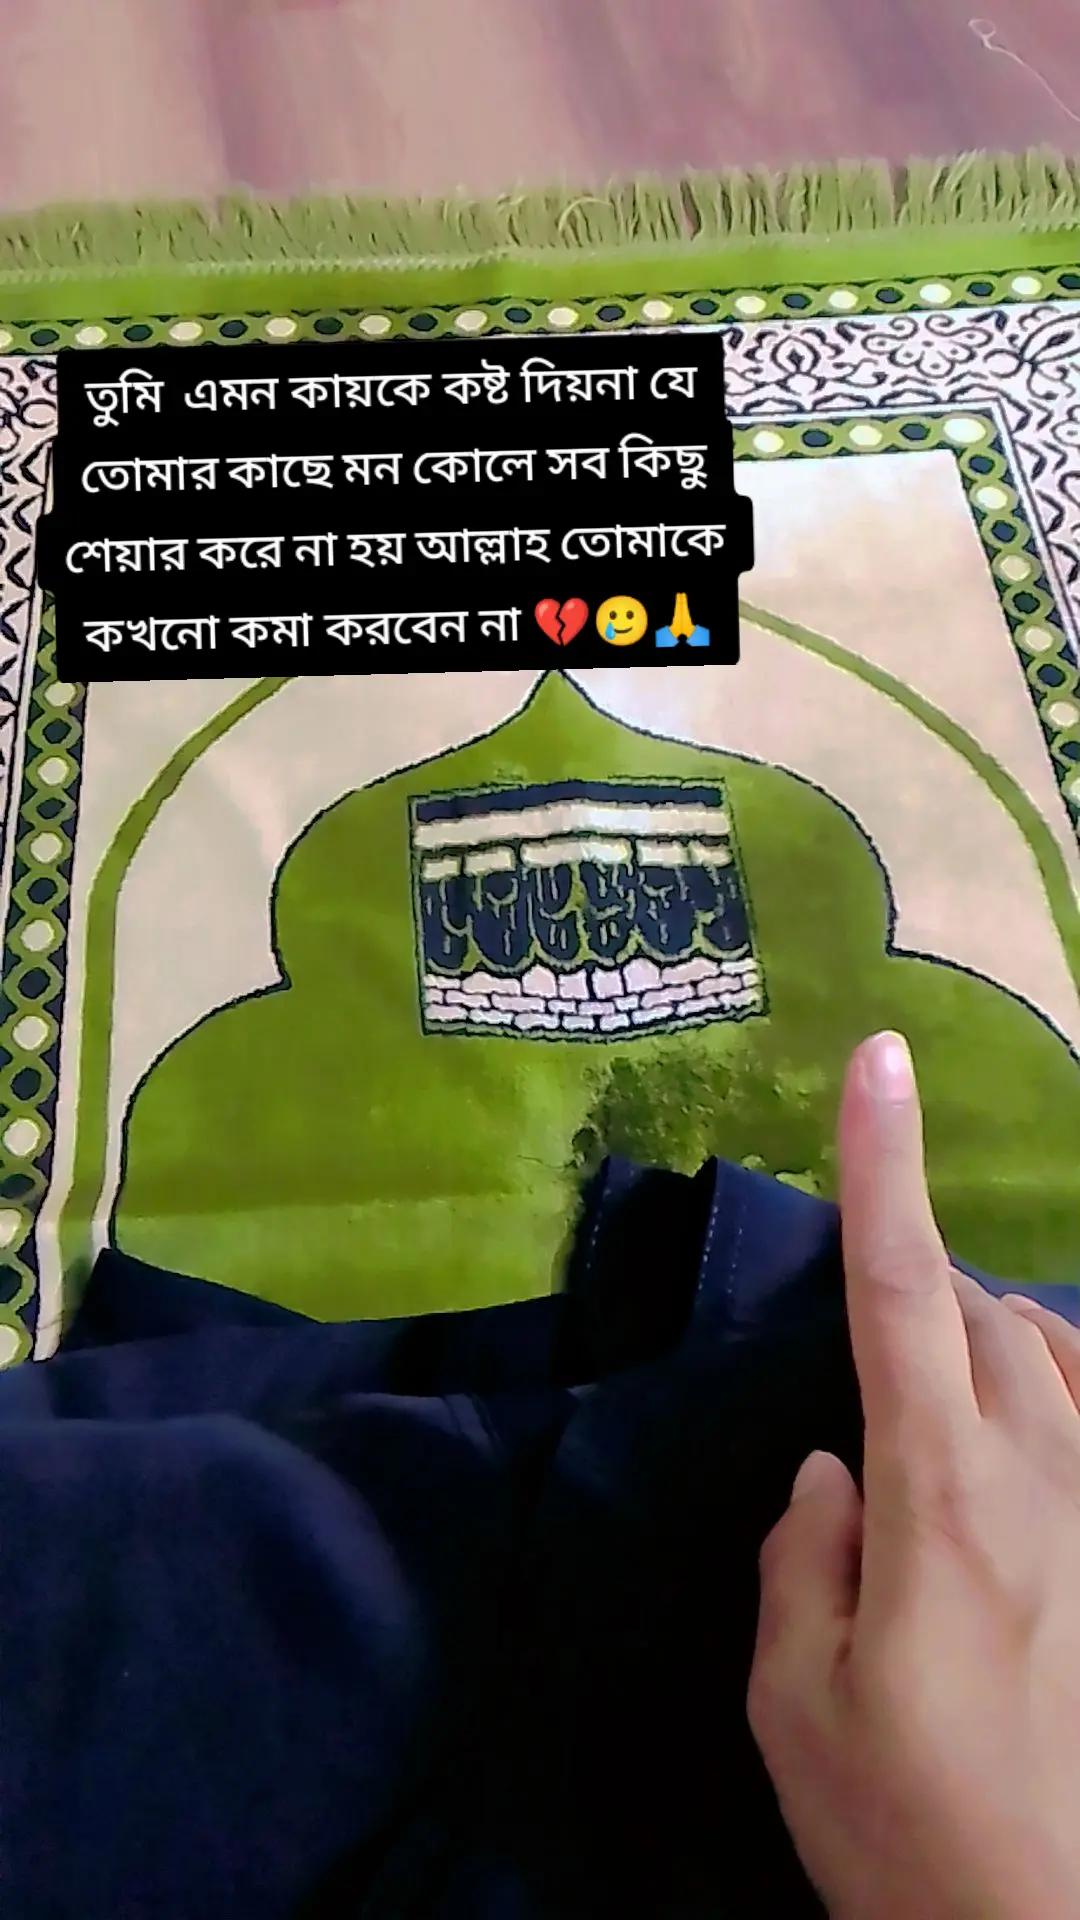 তুমি এমন কায়কে কষ্ট দিয়না যে
তোমার কাছে মন কোলে সব কিছু
শেয়ার করে না হয় আল্লাহ তোমাকে
কখনো কমা করবেন না 💔🥲🙏